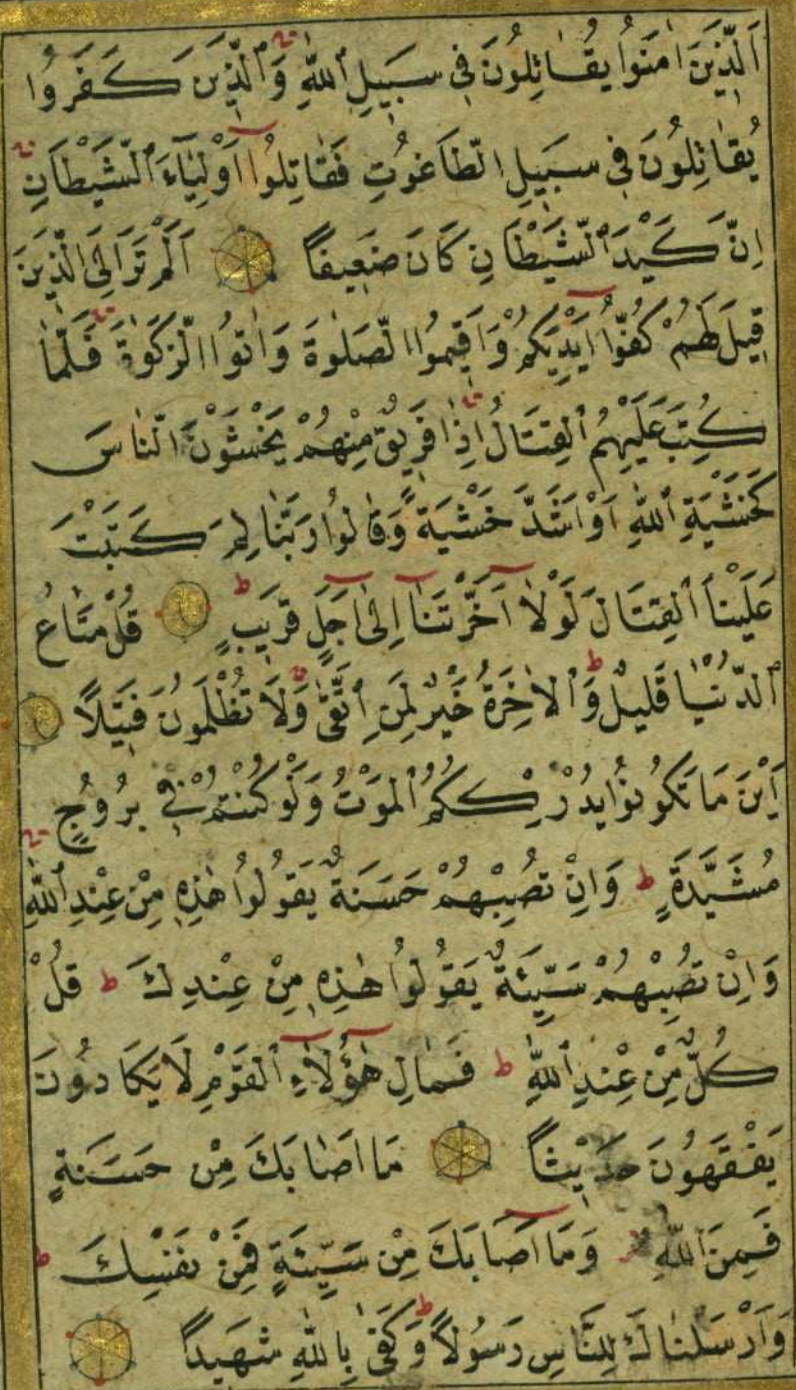 اَلَّذِينَ اٰمَنُوا يُقَاتِلُونَ فِي سَبِيلِ ٱللّٰهِ وَٱلَّذِينَ كَفَرُوا
يُقَاتِلُونَ فِي سَبِيلِ الطَّاغُوتِ فَقَاتِلُوا اَوْلِيَاءَ ٱلشَّيْطَانِ
اِنَّ كَيْدَ ٱلشَّيْطَانِ كَانَ ضَعِيفًا اَلَمْ تَرَ اِلَى الَّذِينَ
قِيلَ لَهُمْ كُفُّوا اَيْدِيَكُمْ وَاَقِيمُوا الصَّلٰوةَ وَاٰتُوا الزَّكٰوةَ فَلَمَّا
كُتِبَ عَلَيْهِمُ ٱلْقِتَالُ اِذَا فَرِيقٌ مِنْهُمْ يَخْشَوْنَ النَّاسَ
كَخَشْيَةِ ٱللّٰهِ اَوْ اَشَدَّ خَشْيَةً وَقَالُوا رَبَّنَا لِمَ كَتَبْتَ
عَلَيْنَا ٱلْقِتَالَ لَوْلَا اَخَّرْتَنَا اِلٰى اَجَلٍ قَرِيبٍ ط قُلْ مَتَاعُ
ٱلدُّنْيَا قَلِيلٌ ط وَٱلْاٰخِرَةُ خَيْرٌ لِمَنِ ٱتَّقٰى وَلَا تُظْلَمُونَ فَتِيلًا
اَيْنَ مَا تَكُونُوا يُدْرِكْكُمُ ٱلْمَوْتُ وَلَوْ كُنْتُمْ فِي بُرُوجٍ
مُشَيَّدَةٍ ط وَاِنْ تُصِبْهُمْ حَسَنَةٌ يَقُولُوا هٰذِهِ مِنْ عِنْدِ ٱللّٰهِ
وَاِنْ تُصِبْهُمْ سَيِّئَةٌ يَقُولُوا هٰذِهِ مِنْ عِنْدِكَ ط قُلْ
كُلٌّ مِنْ عِنْدِ ٱللّٰهِ ط فَمَالِ هٰؤُلَاءِ ٱلْقَوْمِ لَا يَكَادُونَ
يَفْقَهُونَ حَدِيثًا مَا اَصَابَكَ مِنْ حَسَنَةٍ
فَمِنَ ٱللّٰهِ وَمَا اَصَابَكَ مِنْ سَيِّئَةٍ فَمِنْ نَفْسِكَ ط
وَاَرْسَلْنَاكَ لِلنَّاسِ رَسُولًا ط وَكَفٰى بِاللّٰهِ شَهِيدًا